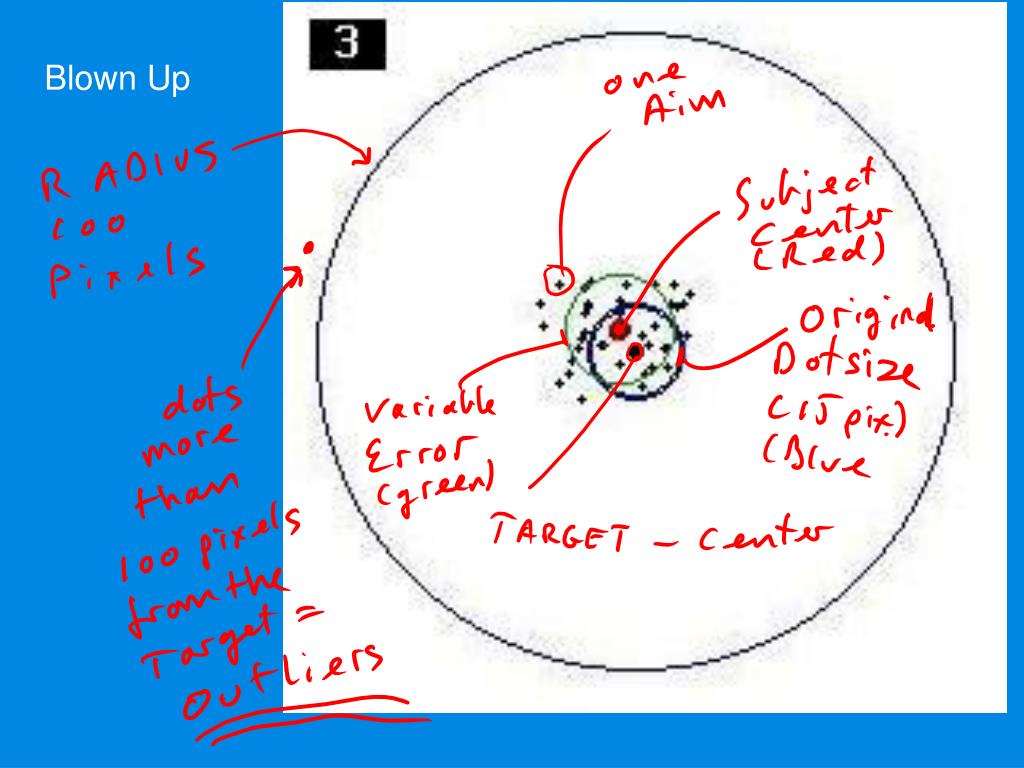 Blown Up
3
one
Aim
RADIUS
100
Pixels
Subject
Center
(Red)
Original
Dotsize
(15 pix)
(Blue
Variable
Error
(green)
TARGET - Center
dots
more
than
100 pixels
from the
Target =
Outliers